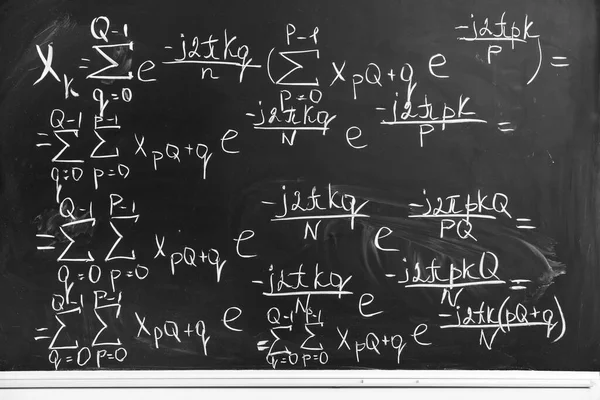 X_k = \sum_{q=0}^{Q-1} e^{\frac{-j2πkq}{n}} ( \sum_{p=0}^{P-1} x_{pQ+q} e^{\frac{-j2πpk}{P}} ) =
= \sum_{q=0}^{Q-1} \sum_{p=0}^{P-1} x_{pQ+q} e^{\frac{-j2πkq}{N}} e^{\frac{-j2πpk}{P}} =
= \sum_{q=0}^{Q-1} \sum_{p=0}^{P-1} x_{pQ+q} e^{\frac{-j2πkq}{N}} e^{\frac{-j2πpkQ}{PQ}} =
= \sum_{q=0}^{Q-1} \sum_{p=0}^{P-1} x_{pQ+q} e^{\frac{-j2πkq}{N}} e^{\frac{-j2πpkQ}{N}} =
= \sum_{q=0}^{Q-1} \sum_{p=0}^{P-1} x_{pQ+q} e^{\frac{-j2πk(pQ+q)}{N}}